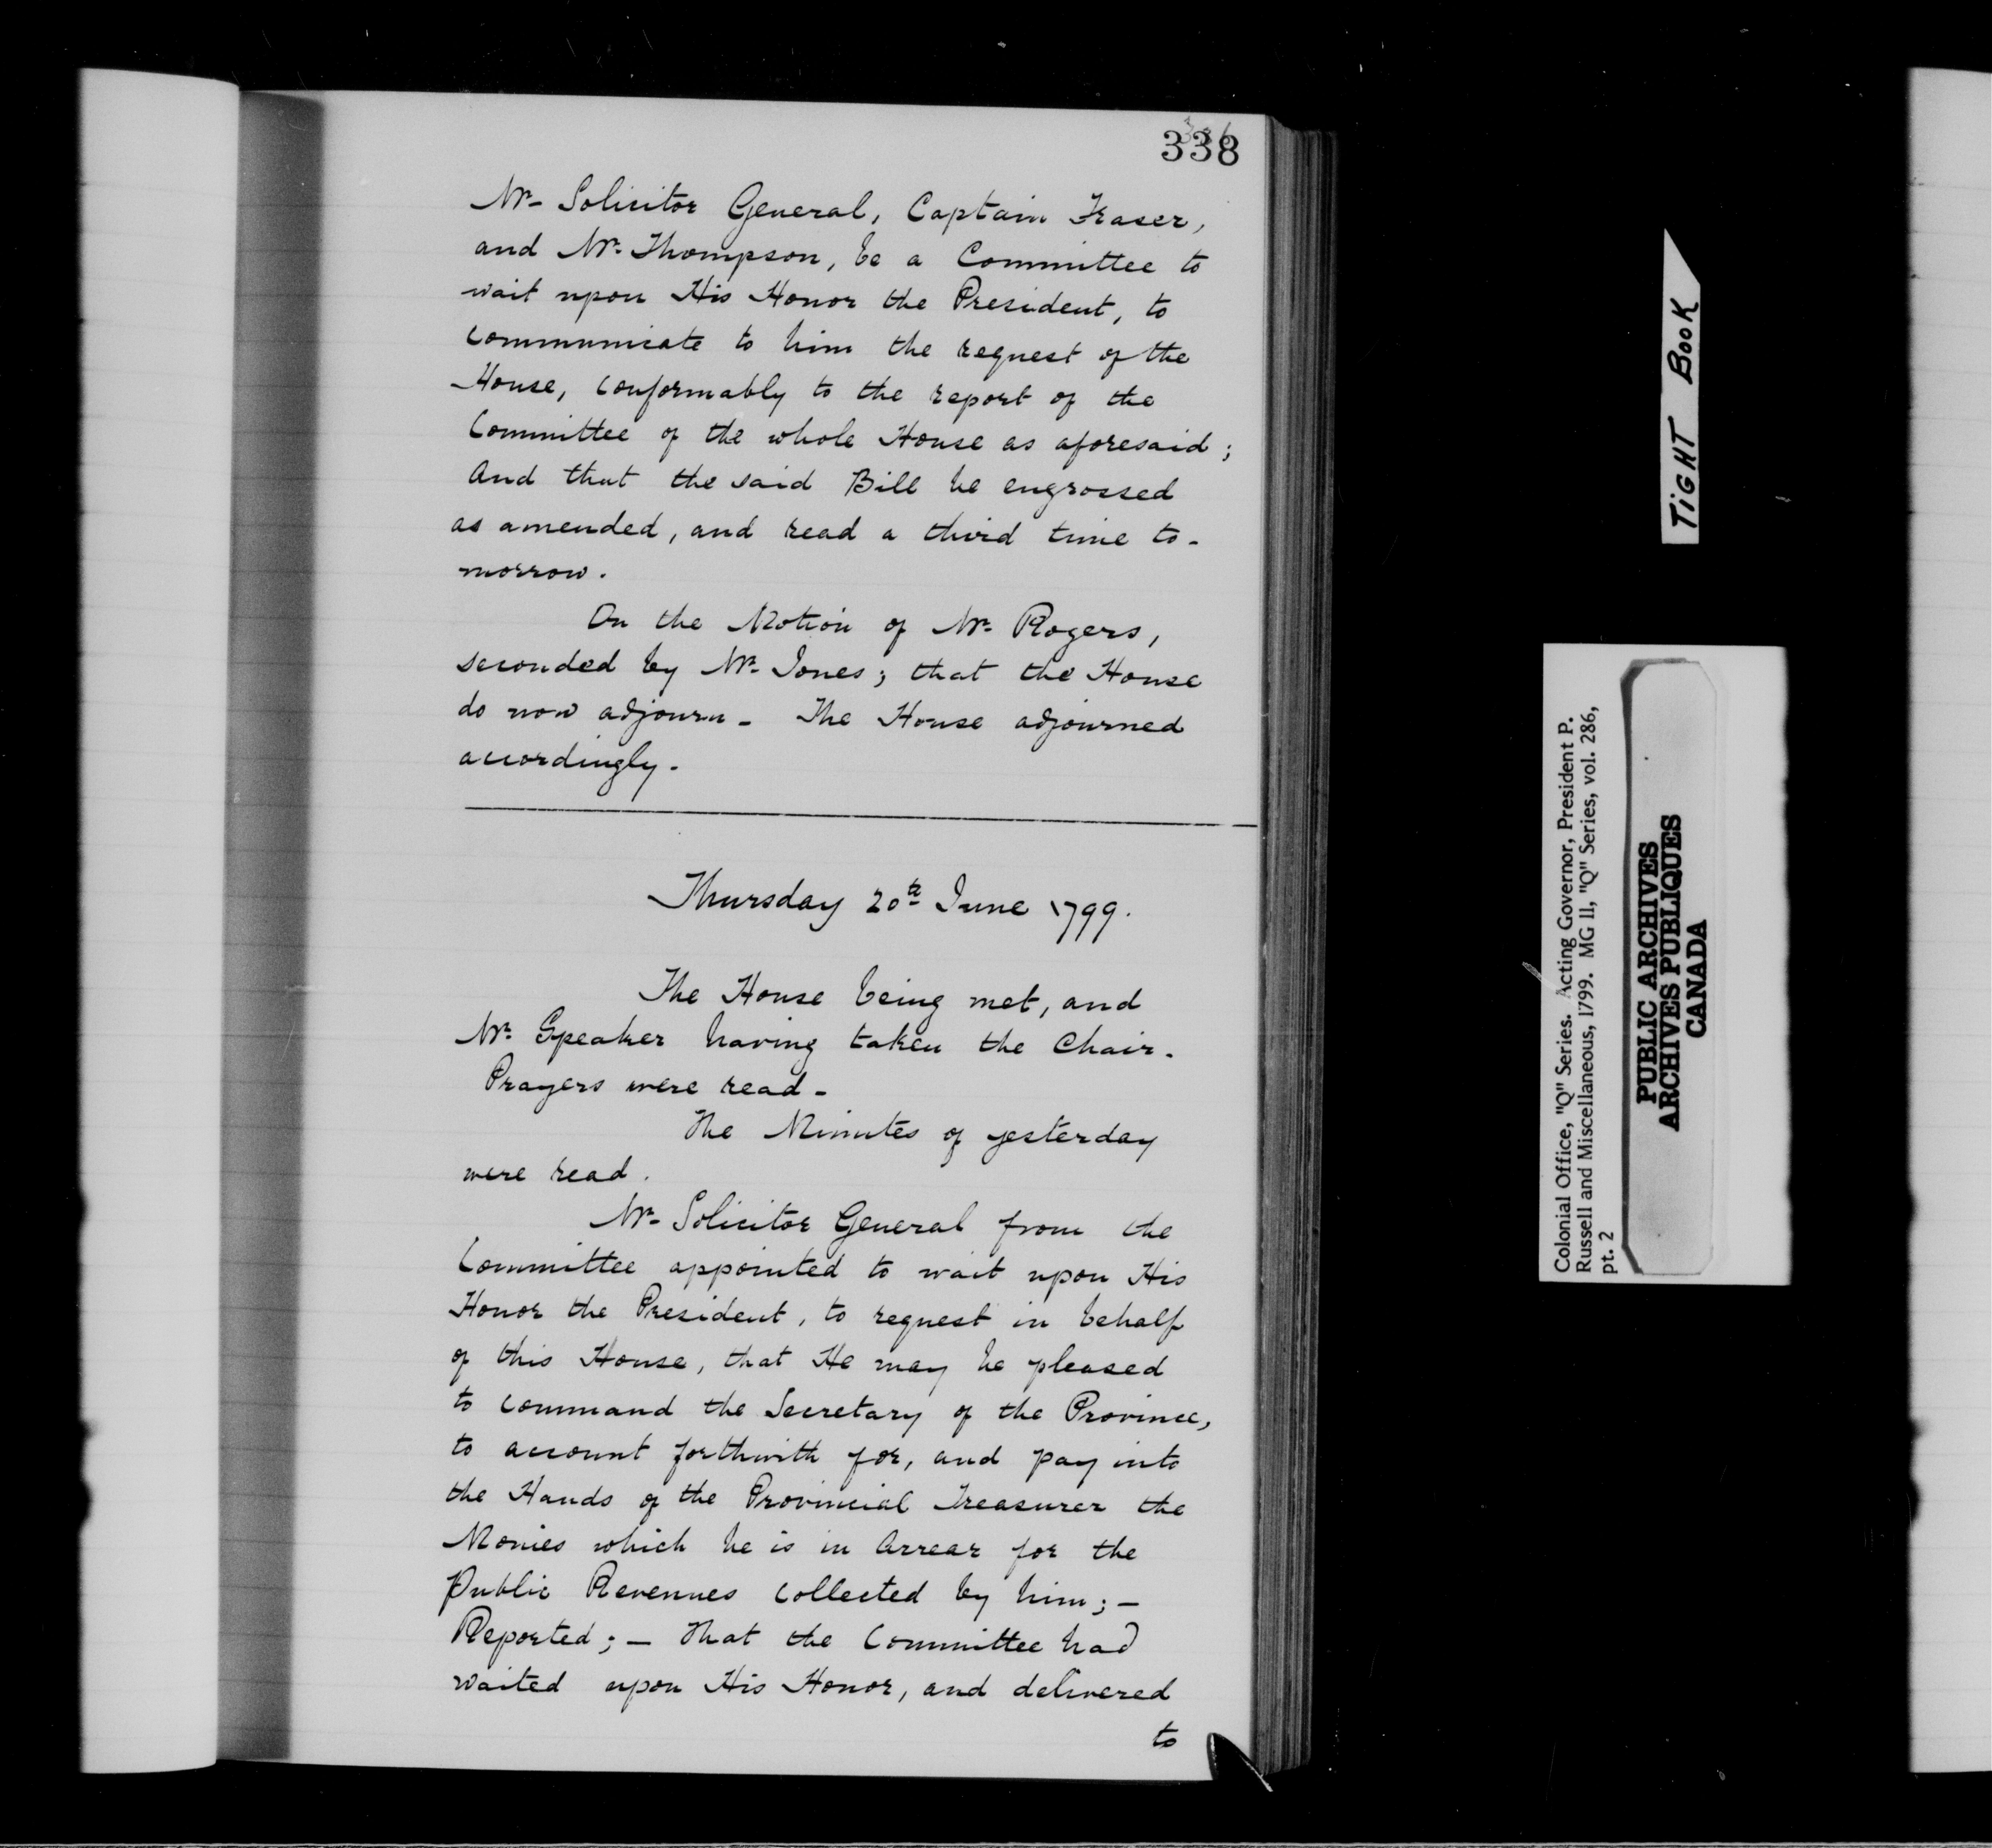 338
Mr. Solicitor General, Captain Fraser,
and Mr. Thompson, be a Committee to
wait upon His Honor the President, to
communicate to him the request of the
House, conformably to the report of the
Committee of the whole House as aforesaid;
And that the said Bill be engrossed
as amended, and read a third time to-
morrow.
On the Motion of Mr. Rogers,
seconded by Mr. Jones; that the House
do now adjourn - The House adjourned
accordingly.
Thursday 20th June 1799.
The House being met, and
Mr. Speaker having taken the Chair.
Prayers were read -
The Minutes of yesterday
were read.
Mr. Solicitor General from the
Committee appointed to wait upon His
Honor the President, to request in behalf
of this House, that He may be pleased
to command the Secretary of the Province,
to account forthwith for, and pay into
the Hands of the Provincial Treasurer the
Monies which he is in Arrear for the
Public Revenues collected by him; -
Reported; - That the Committee had
waited upon His Honor, and delivered
to
TiGHT BooK
Colonial Office, "Q" Series. Acting Governor, President P.
Russell and Miscellaneous, 1799. MG 11, "Q" Series, vol. 286,
pt. 2
PUBLIC ARCHIVES
ARCHIVES PUBLIQUES
CANADA